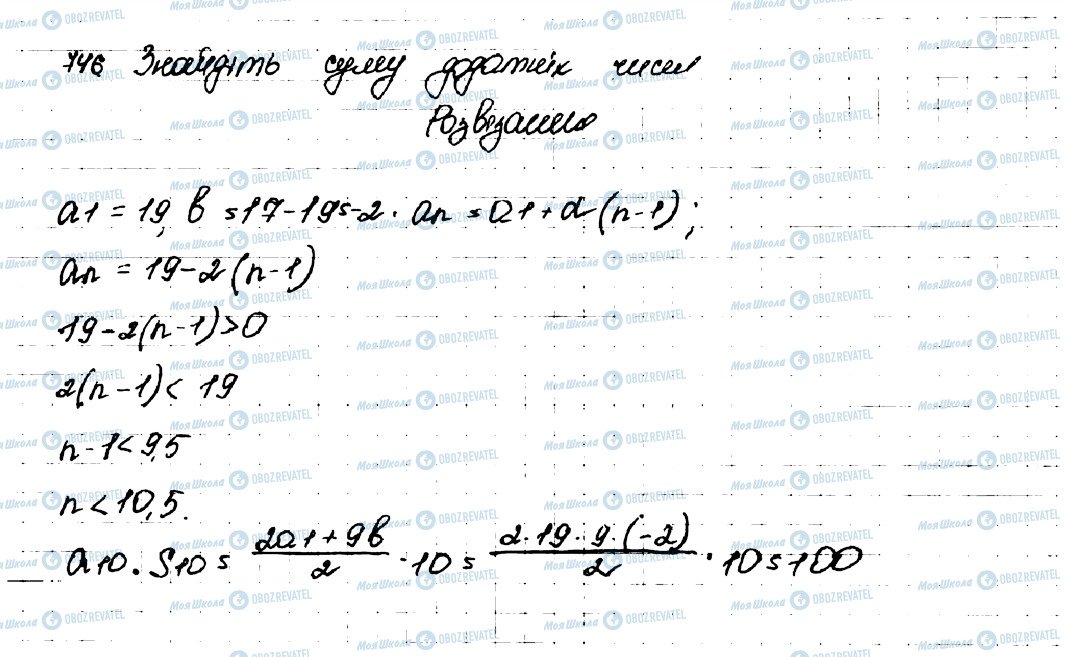 746 Знайдіть суму додатніх чисел
Розвязання
a1 = 19, b = 17-19=-2. an = a1 + d(n-1);
an = 19-2(n-1)
19-2(n-1)>0
2(n-1)< 19
n-1<9,5
n<10,5.
a10. S10= \frac{2a1+9b}{2} ·10= \frac{2·19·9·(-2)}{2} ·10=100